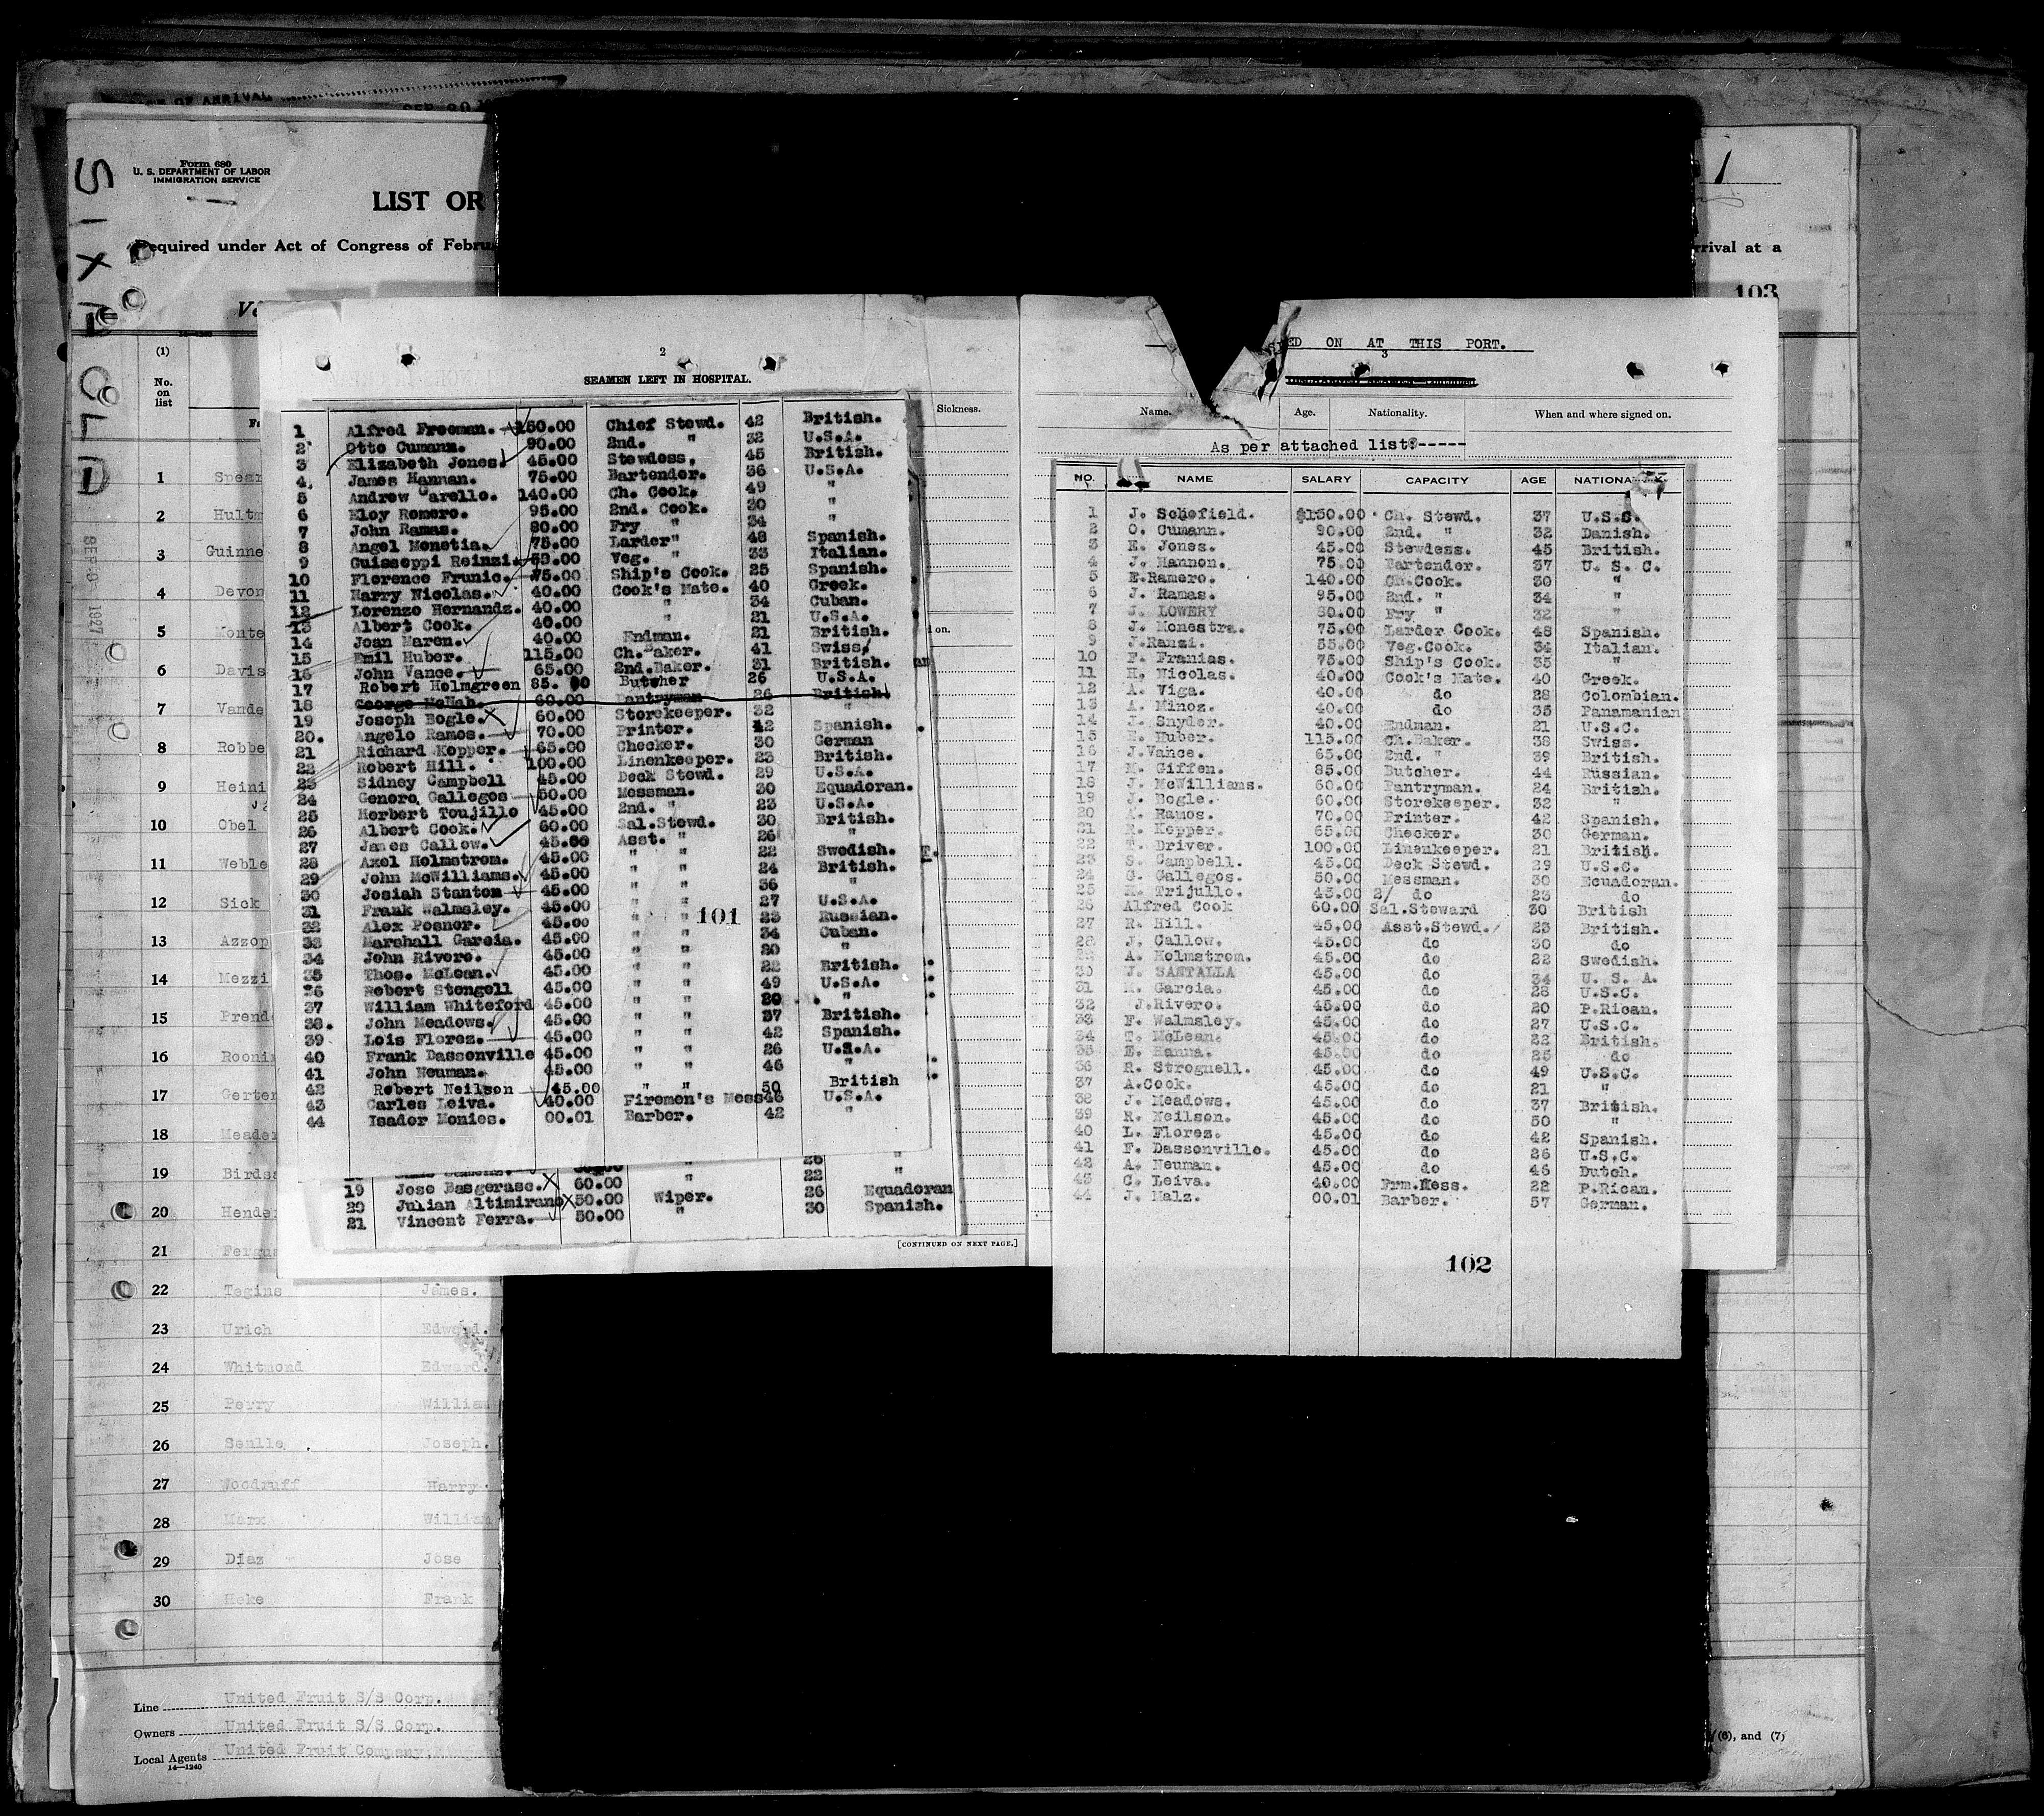 PLACE OF ARRIVAL
SIXAOLA
Form 680
U. S. DEPARTMENT OF LABOR
IMMIGRATION SERVICE
LIST OR
Required under Act of Congress of Februa
rrival at a
1
103
(1)
No.
on
list
1 Spear
2 Hultm
3 Guinne
4 Devon
5 Konte
6 Davis
7 Vande
8 Robbe
9 Heini
10 Obel
11 Weble
12 Sick
13 Azzop
14 Mezzi
15 Prend
16 Rooni
17 Gerter
18 Meader
19 Birds
20 Hende
21 Fergu
22 Tegins James.
23 Urich Edward.
24 Whitmond Edward.
25 Perry William
26 Senlle Joseph.
27 Woodruff Harry
28 Marx William
29 Diaz Jose
30 Heke Frank
Line United Fruit S/S Corp.
Owners United Fruit S/S Corp.
Local Agents United Fruit Company,
14—1240
(6), and (7)
2
SEAMEN LEFT IN HOSPITAL.
Sickness.
1 Alfred Freeman. 150.00 Chief Stewd. 42 British.
2 Otto Cumann. 90.00 2nd. " 32 U.S.A.
3 Elizabeth Jones. 45.00 Stewdess, 45 British.
4 James Hannan. 75.00 Bartender. 36 U.S.A.
5 Andrew Carello. 140.00 Ch. Cook. 49 "
6 Eloy Romero. 95.00 2nd. Cook. 30 "
7 John Ramas. 80.00 Fry " 34 "
8 Angel Menetia. 75.00 Larder" 48 Spanish.
9 Guisseppi Reinzi. 55.00 Veg. " 33 Italian.
10 Florence Frunic. 75.00 Ship's Cook. 25 Spanish.
11 Harry Nicolas. 40.00 Cook's Mate. 40 Greek.
12 Lorenzo Hernandz. 40.00 " 34 Cuban.
13 Albert Cook. 40.00 " 21 U.S.A.
14 Joan Maren. 40.00 Endman. 21 British.
15 Emil Huber. 115.00 Ch.Baker. 41 Swiss.
16 John Vance. 65.00 2nd.Baker. 31 British.
17 Robert Holmgreen 85.00 Butcher 26 U.S.A.
18 George McNab. 60.00 Pantryman 26 British.
19 Joseph Bogle. 60.00 Storekeeper. 32 "
20. Angelo Ramos. 70.00 Printer. 42 Spanish.
21 Richard Kopper. 65.00 Checker. 30 German
22 Robert Hill. 100.00 Linenkeeper. 23 British.
23 Sidney Campbell 45.00 Deck Stewd. 29 U.S.A.
24 Genoro Gallegos 50.00 Messman. 30 Equadoran.
25 Herbert Toujillo 45.00 2nd. " 23 U.S.A.
26 Albert Cook. 60.00 Sal.Stewd. 30 British.
27 James Callow. 45.00 Asst. " 26 "
28 Axel Holmstrom. 45.00 " " 22 Swedish.
29 John McWilliams. 45.00 " " 24 British.
30 Josiah Stanton 45.00 " " 36 "
31 Frank Walmsley. 45.00 " " 27 U.S.A.
32 Alex Posner. 45.00 " " 23 Russian.
33 Marshall Garcia. 45.00 " " 34 Cuban.
34 John Rivero. 45.00 " " 20 "
35 Thos. McLean. 45.00 " " 22 British.
36 Robert Stongell 45.00 " " 49 U.S.A.
37 William Whiteford 45.00 " " 20 "
38. John Meadows. 45.00 " " 37 British.
39 Lois Florez. 45.00 " " 42 Spanish.
40 Frank Dassonville 45.00 " " 26 U.S.A.
41 John Neuman. 45.00 " " 46 "
42 Robert Neilson 45.00 " " 50 British
43 Carles Leiva. 40.00 Firemen's Mess 46 U.S.A.
44 Isador Monies. 00.01 Barber. 42 "
101
19 Jose Basgerasc. 60.00 " 22 "
20 Julian Altimirano 50.00 Wiper. 26 Equadoran
21 Vincent Ferra. 50.00 " 30 Spanish.
[CONTINUED ON NEXT PAGE.]
ED ON AT THIS PORT.
3
Name. Age. Nationality. When and where signed on.
As per attached list:-----
NO. NAME SALARY CAPACITY AGE NATIONA
1 J. Schefield. $150.00 Ch. Stewd. 37 U.S.S.
2 O. Cumann. 90.00 2nd. " 32 Danish.
3 E. Jones. 45.00 Stewdess. 45 British.
4 J. Hannon. 75.00 Bartender. 37 U. S. C.
5 E.Ramero. 140.00 Ch.Cook. 30 "
6 J. Ramas. 95.00 2nd. " 34 "
7 J. LOWERY 80.00 Fry " 32 "
8 J. Monestra. 75.00 Larder Cook. 48 Spanish.
9 J.Ranzi. 55.00 Veg.Cook. 34 Italian.
10 F. Franias. 75.00 Ship's Cook. 35 "
11 H. Nicolas. 40.00 Cook's Mate. 40 Greek.
12 A. Viga. 40.00 do 28 Colombian.
13 A. Minoz. 40.00 do 35 Panamanian
14 J. Snyder. 40.00 Endman. 21 U.S.C.
15 E. Huber. 115.00 Ch.Baker. 38 Swiss.
16 J.Vance. 65.00 2nd. " 39 British.
17 M. Giffen. 85.00 Butcher. 44 Russian.
18 J. McWilliams. 60.00 Pantryman. 24 British.
19 J. Bogle. 60.00 Storekeeper. 32 "
20 A. Ramos. 70.00 Printer. 42 Spanish.
21 R. Kopper. 65.00 Checker. 30 German.
22 T. Driver. 100.00 Linenkeeper. 21 British.
23 S. Campbell. 45.00 Deck Stewd. 29 U.S.C.
24 G. Gallegos. 50.00 Messman. 30 Ecuadoran.
25 H. Trijullo. 45.00 2/ do 23 do
26 Alfred Cook 60.00 Sal.Steward 30 British
27 R. Hill. 45.00 Asst.Stewd. 23 British.
28 J. Callow. 45.00 do 30 do
29 A. Holmstrom. 45.00 do 22 Swedish.
30 J. SANTALLA 45.00 do 34 U. S. A.
31 M. Garcia. 45.00 do 28 U.S.C.
32 J.Rivero. 45.00 do 20 P.Rican.
33 F. Walmsley. 45.00 do 27 U.S.C.
34 T. McLean. 45.00 do 22 British.
35 E. Hanna. 45.00 do 25 do
36 R. Strognell. 45.00 do 49 U.S.C.
37 A.Cook. 45.00 do 21 "
38 J. Meadows. 45.00 do 37 British.
39 R. Neilson. 45.00 do 50 "
40 L. Florez. 45.00 do 42 Spanish.
41 F. Dassonville. 45.00 do 26 U.S.C.
42 A. Neuman. 45.00 do 46 Dutch.
43 C. Leiva. 40.00 Frm.Mess. 22 P.Rican.
44 J. Malz. 00.01 Barber. 57 German.
102